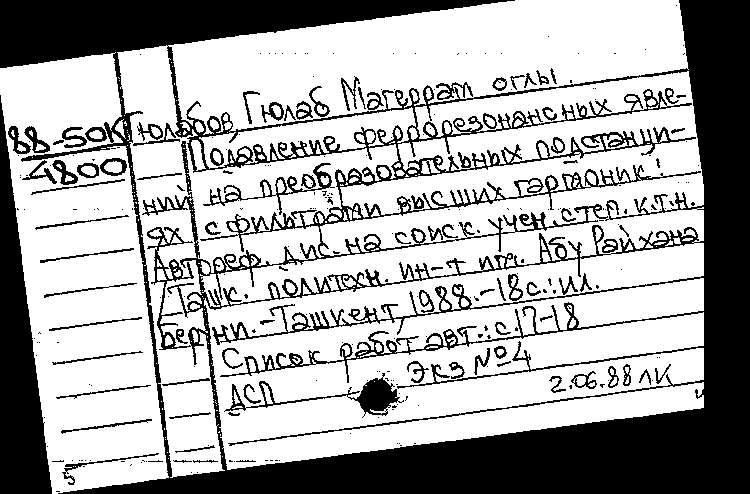 88-50К Гюлабов, Гюлаб Магеррам оглы.
4800 Подавление феррорезонансных явле-
ний на преобразовательных подстанци-
ях с фильтрами высших гармоник:
Автореф. дис. на соиск. учен. степ. к.т.н.
/Ташк. политехн. ин-т им. Абу Райхана
Беруни. -Ташкент, 1988.-18с.:ил.
Список работ авт.: с.17-18
ДСП Экз №4
2.06.88 ЛК
5